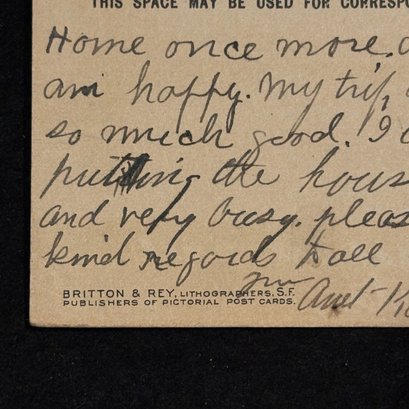 THIS SPACE MAY BE USED FOR CORRESPO
Home once more.
am happy. My trip
so much good. I
putting the hous
and very busy. pleas
kind regards to all
Aunt
BRITTON & REY, LITHOGRAPHERS, S.F.
PUBLISHERS OF PICTORIAL POST CARDS.